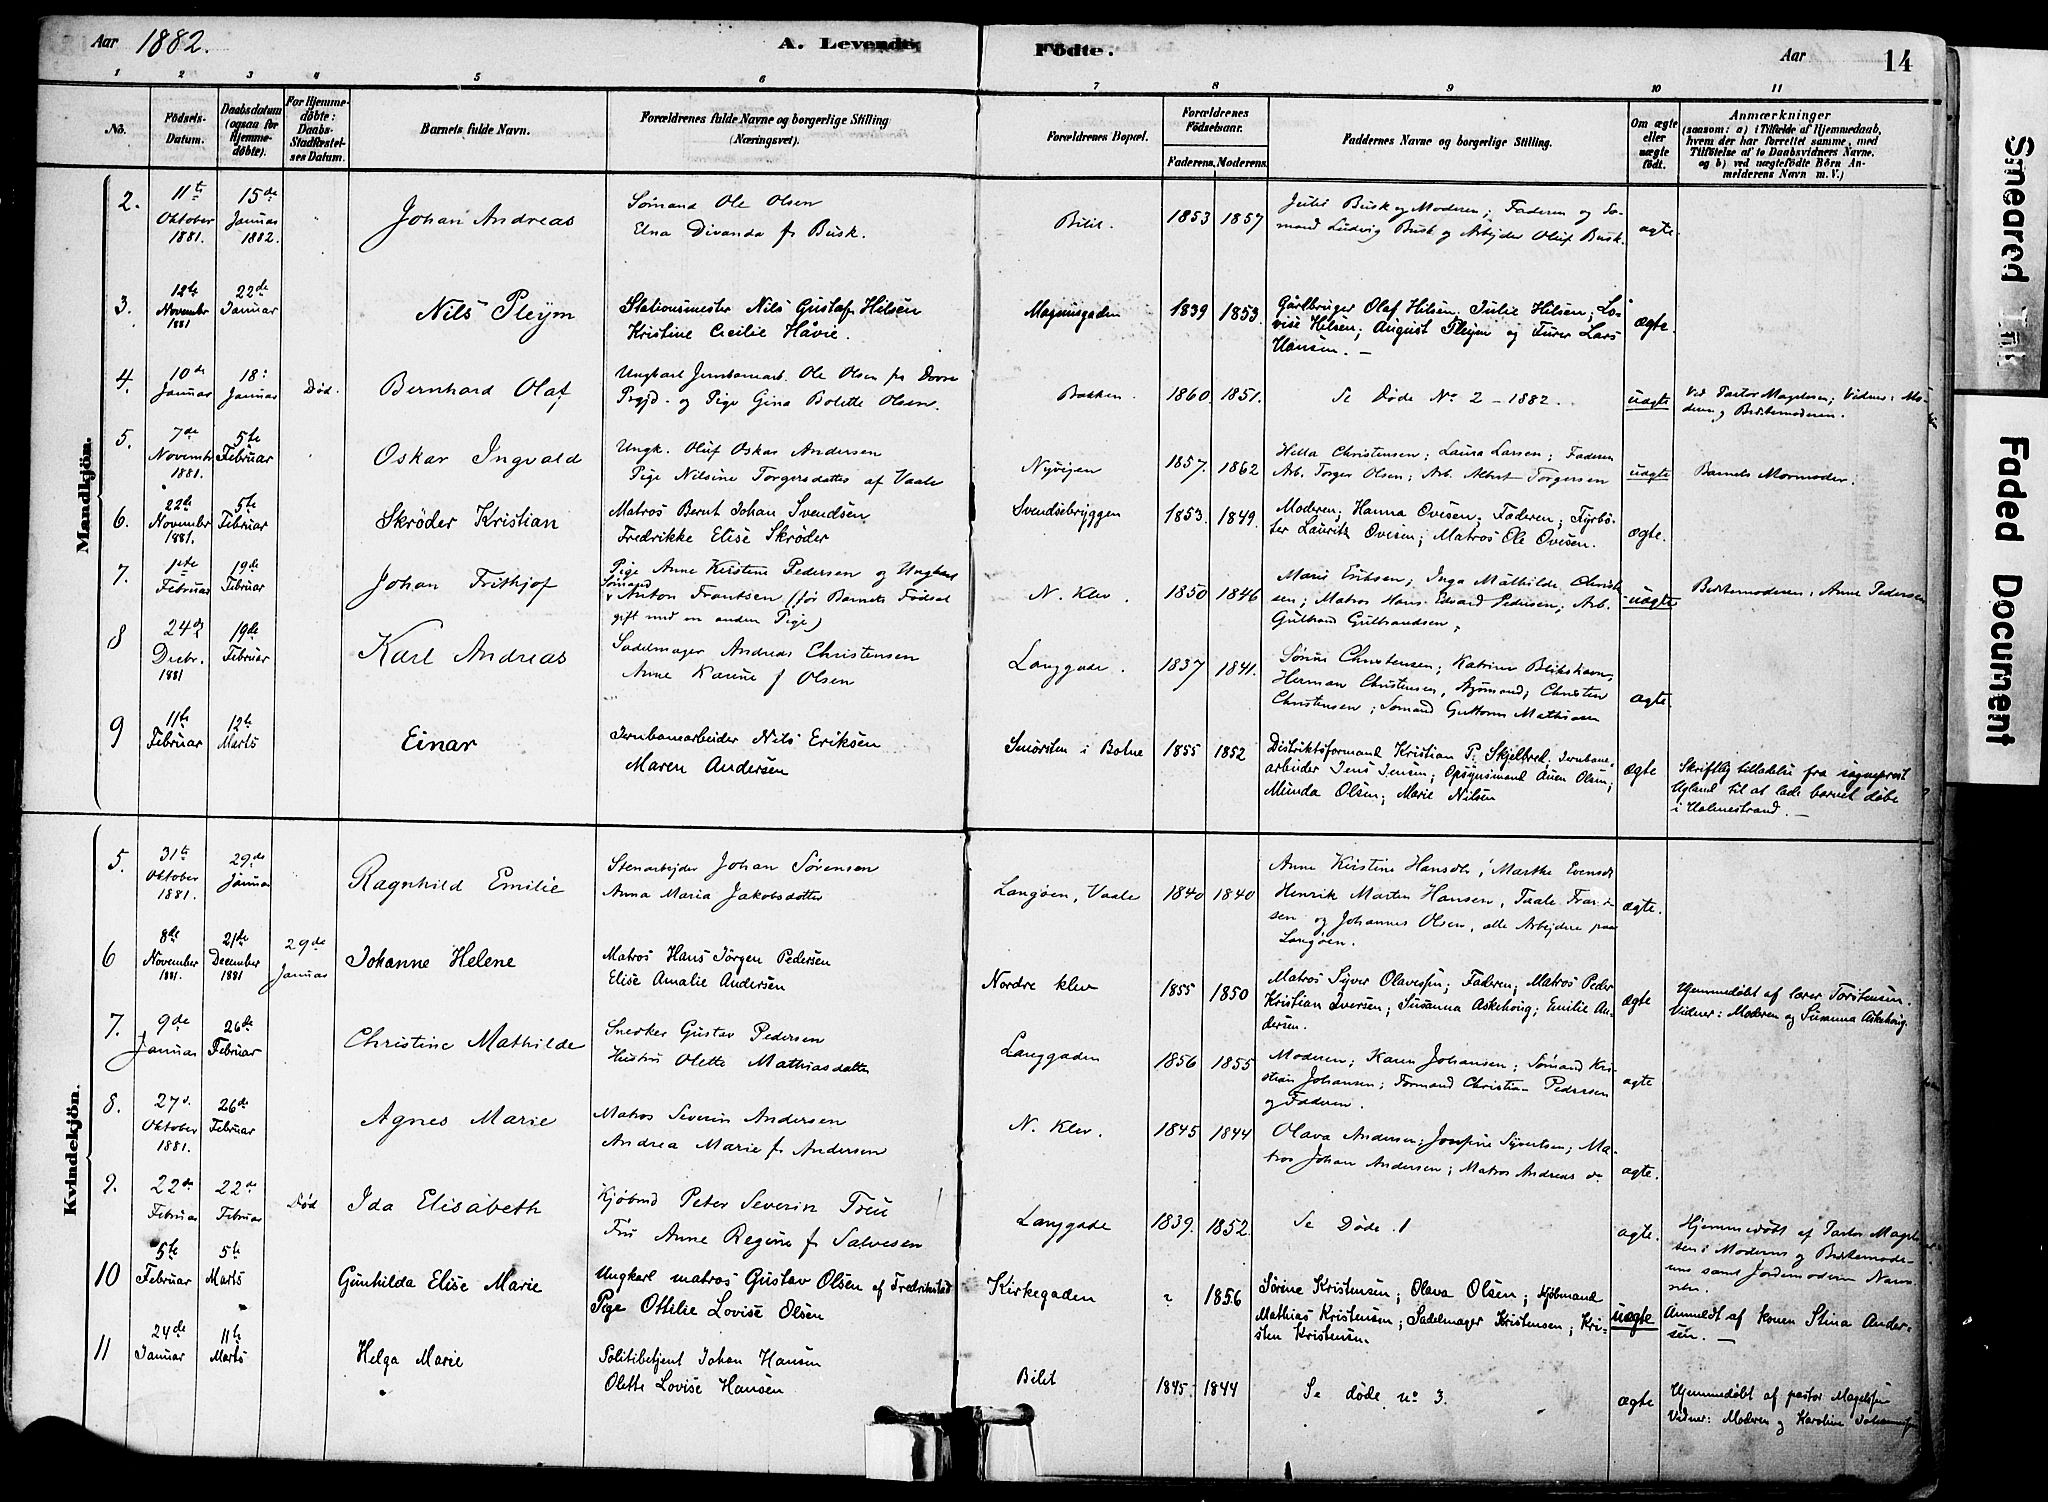 Aar 1882.
A. Levende
Födte.
Aar
14
1 2 3 4 5 6 7 8 9 10 11
No.
Födsels-Datum.
Daabsdatum (ogsaa for Hjemmedöbte).
For Hjemmedöbte: Daabs-Stadfæstelses Datum.
Barnets fulde Navn.
Forældrenes fulde Navne og borgerlige Stilling (Næringsvei).
Forældrenes Bopæl.
Forældrenes Födselsaar.
Faderens. Moderens.
Faddernes Navne og borgerlige Stilling.
Om ægte eller uægte födt.
Anmærkninger
(saasom: a) i Tilfælde af Hjemmedaab, hvem der har forrettet samme, med Tilföielse af to Daabsvidners Navne, og b) ved uægtefödte Börn Anmelderens Navn m. V.)
Mandkjön.
2. 11te Oktober 1881. 15de Januar 1882. Johan Andreas
Sømand Ole Olsen
Elna Divanda f. Busk.
Bilit. 1853 1857
Julie Busk og Moderen; Faderen og Sømand Ludvig Busk og Arbejder Oluf Busk.
ægte.
3. 12te November 1881 22de Januar Nils Pleym
Stationsmester Nils Gustaf Hilsen
Kristine Cecilie Håvie.
Magnusgaden 1839 1853.
Gårdbruger Olaf Hilsen; Julie Hilsen; Lovise Hilsen; August Pleym og Furer Lars Hansen. —
ægte.
4. 10de Januar 18: Januar Død. Bernhard Olaf
Ungkarl Jernbanearb. Ole Olsen fra Dovre
Prgjd. og Pige Gina Bolette Olsen.
Bakken. 1860. 1851.
Se Døde No 2 - 1882.
uægte
Ved Pastor Magelssen; Vidner: Moderen og Bestemoderen.
5. 7de Novembr 1881. 5te Februar Oskar Ingvald
Ungk. Oluf Oskar Andersen
Pige Nilsine Torgersdatter af Vaale
Nyvejen 1857. 1862
Hella Christensen; Laura Larsen; Faderen
Arb. Torger Olsen; Arb. Albert Torgersen
uægte
Barnets Mormoder.
6. 22de November 1881 5te Februar Skrøder Kristian
Matros Bernt Johan Svendsen
Fredrikke Elise Skrøder
Svendsebryggen 1853. 1849.
Moderen; Hanna Ovesen; Faderen; Fyrbøter Lauritz Ovesen; Matros Ole Ovesen.
ægte.
7. 1ste Februar 19de Februar Johan Frithjof
Pige Anne Kirstine Pedersen og Ungkarl
Sømand Anton Frantsen (før Barnets Fødsel
gift med en anden Pige)
N. Klev. 1850 1846
Marie Eriksen; Inga Mathilde Christensen; Matros Hans Edvard Pedersen; Arb. Gulbrand Gulbrandsen.
uægte
Bestemoderen, Anne Pedersen
8 24de Decbr. 1881 19de Februar Karl Andreas
Sadelmager Andreas Christensen
Anne Karine f Olsen
Langgade. 1837 1841.
Sørine Christensen; Katrine Blikshavn,
Herman Christensen, Styrmand; Christen
Christensen; Sømand Guttorm Mathisen
ægte.
9 11te Februar 12te Marts Einar
Jernbanearbeider Nils Eriksen
Maren Andersen
Smørsten i Botne 1855 1852
Distriktsformand Kristian P. Skjelbred; Jernbanearbeider Jens Jensen; Opsynsmand Auen Olsen;
Munda Olsen; Marie Nilsen
ægte
Skriftlig tilladelse fra sogneprest Ugland til at lade barnet døbe i Holmestrand. —
Kvindekjön.
5. 31te Oktober 1881. 29de Januar Ragnhild Emilie
Stenarbejder Johan Sørensen
Anna Maria Jakobsdatter
Langøen, Vaale 1840 1840
Anne Kirstine Hansdt; Marthe Evensdt
Henrik Marten Hansen, Taale Fransen og Johannes Olsen, alle Arbejdere paa Langøen.
ægte.
6 8de November 1881. 21de December 1881 29de Januar Johanne Helene
Matros Hans Jørgen Pedersen
Elise Amalie Andersen
Nordre klev 1855 1850
Matros Syver Olavessen; Faderen; Matros Peder
Kristian Iversen; Susanna Askehoug; Emilie Andersen.
ægte
Hjemmedøbt af lærer Torstensen.
Vidner: Moderen og Susanna Askehoug.
7. 9de Januar 26de Februar Christine Mathilde
Snedker Gustav Pedersen
Hustru Olette Mathiasdatter
Langgaden 1856 1855
Moderen; Karen Johansen; Sømand Kristian Johansen; Formand Christian Pedersen
og Faderen.
ægte
8. 27d. Oktober 1881. 26de Februar Agnes Marie
Matros Severin Andersen
Andrea Marie f. Andersen
N. Klev. 1845 1844
Olava Andersen; Josefine Syvertsen; Matros Johan Andersen; Matros Andreas do
ægte.
9. 22de Februar 22de Februar Død Ida Elisabeth
Kjøbmd Peter Severin Treu
Fru Anne Regine f. Salvesen
Langgade 1839. 1852.
Se Døde 1
ægte.
Hjemmedøbt af Pastor Magelssen; Moderens og Bestemoderens samt Jordemoderen
10 5te Februar 5te Marts Gunhilda Elise Marie
Ungkarl matros Gustav Olsen af Fredrikstad
Pige Ottilie Lovise Olsen
Kirkegaden ? 1856
Sørine Kristensen; Olava Olsen; Kjøbmand
Mathias Kristensen; Sadelmager Kristensen; Kristen Kristensen.
uægte
Anmeldt af konen Stina Andersen. —
11 24de Januar 11te Marts Helga Marie
Politibetjent Johan Hansen
Olette Lovise Hansen
Bilet 1845. 1844
Se døde no 3.
ægte
Hjemmedøbt af pastor Magelssen
Vidner: Moderen og Karoline Johannesen
Smeared Ink
Faded Document